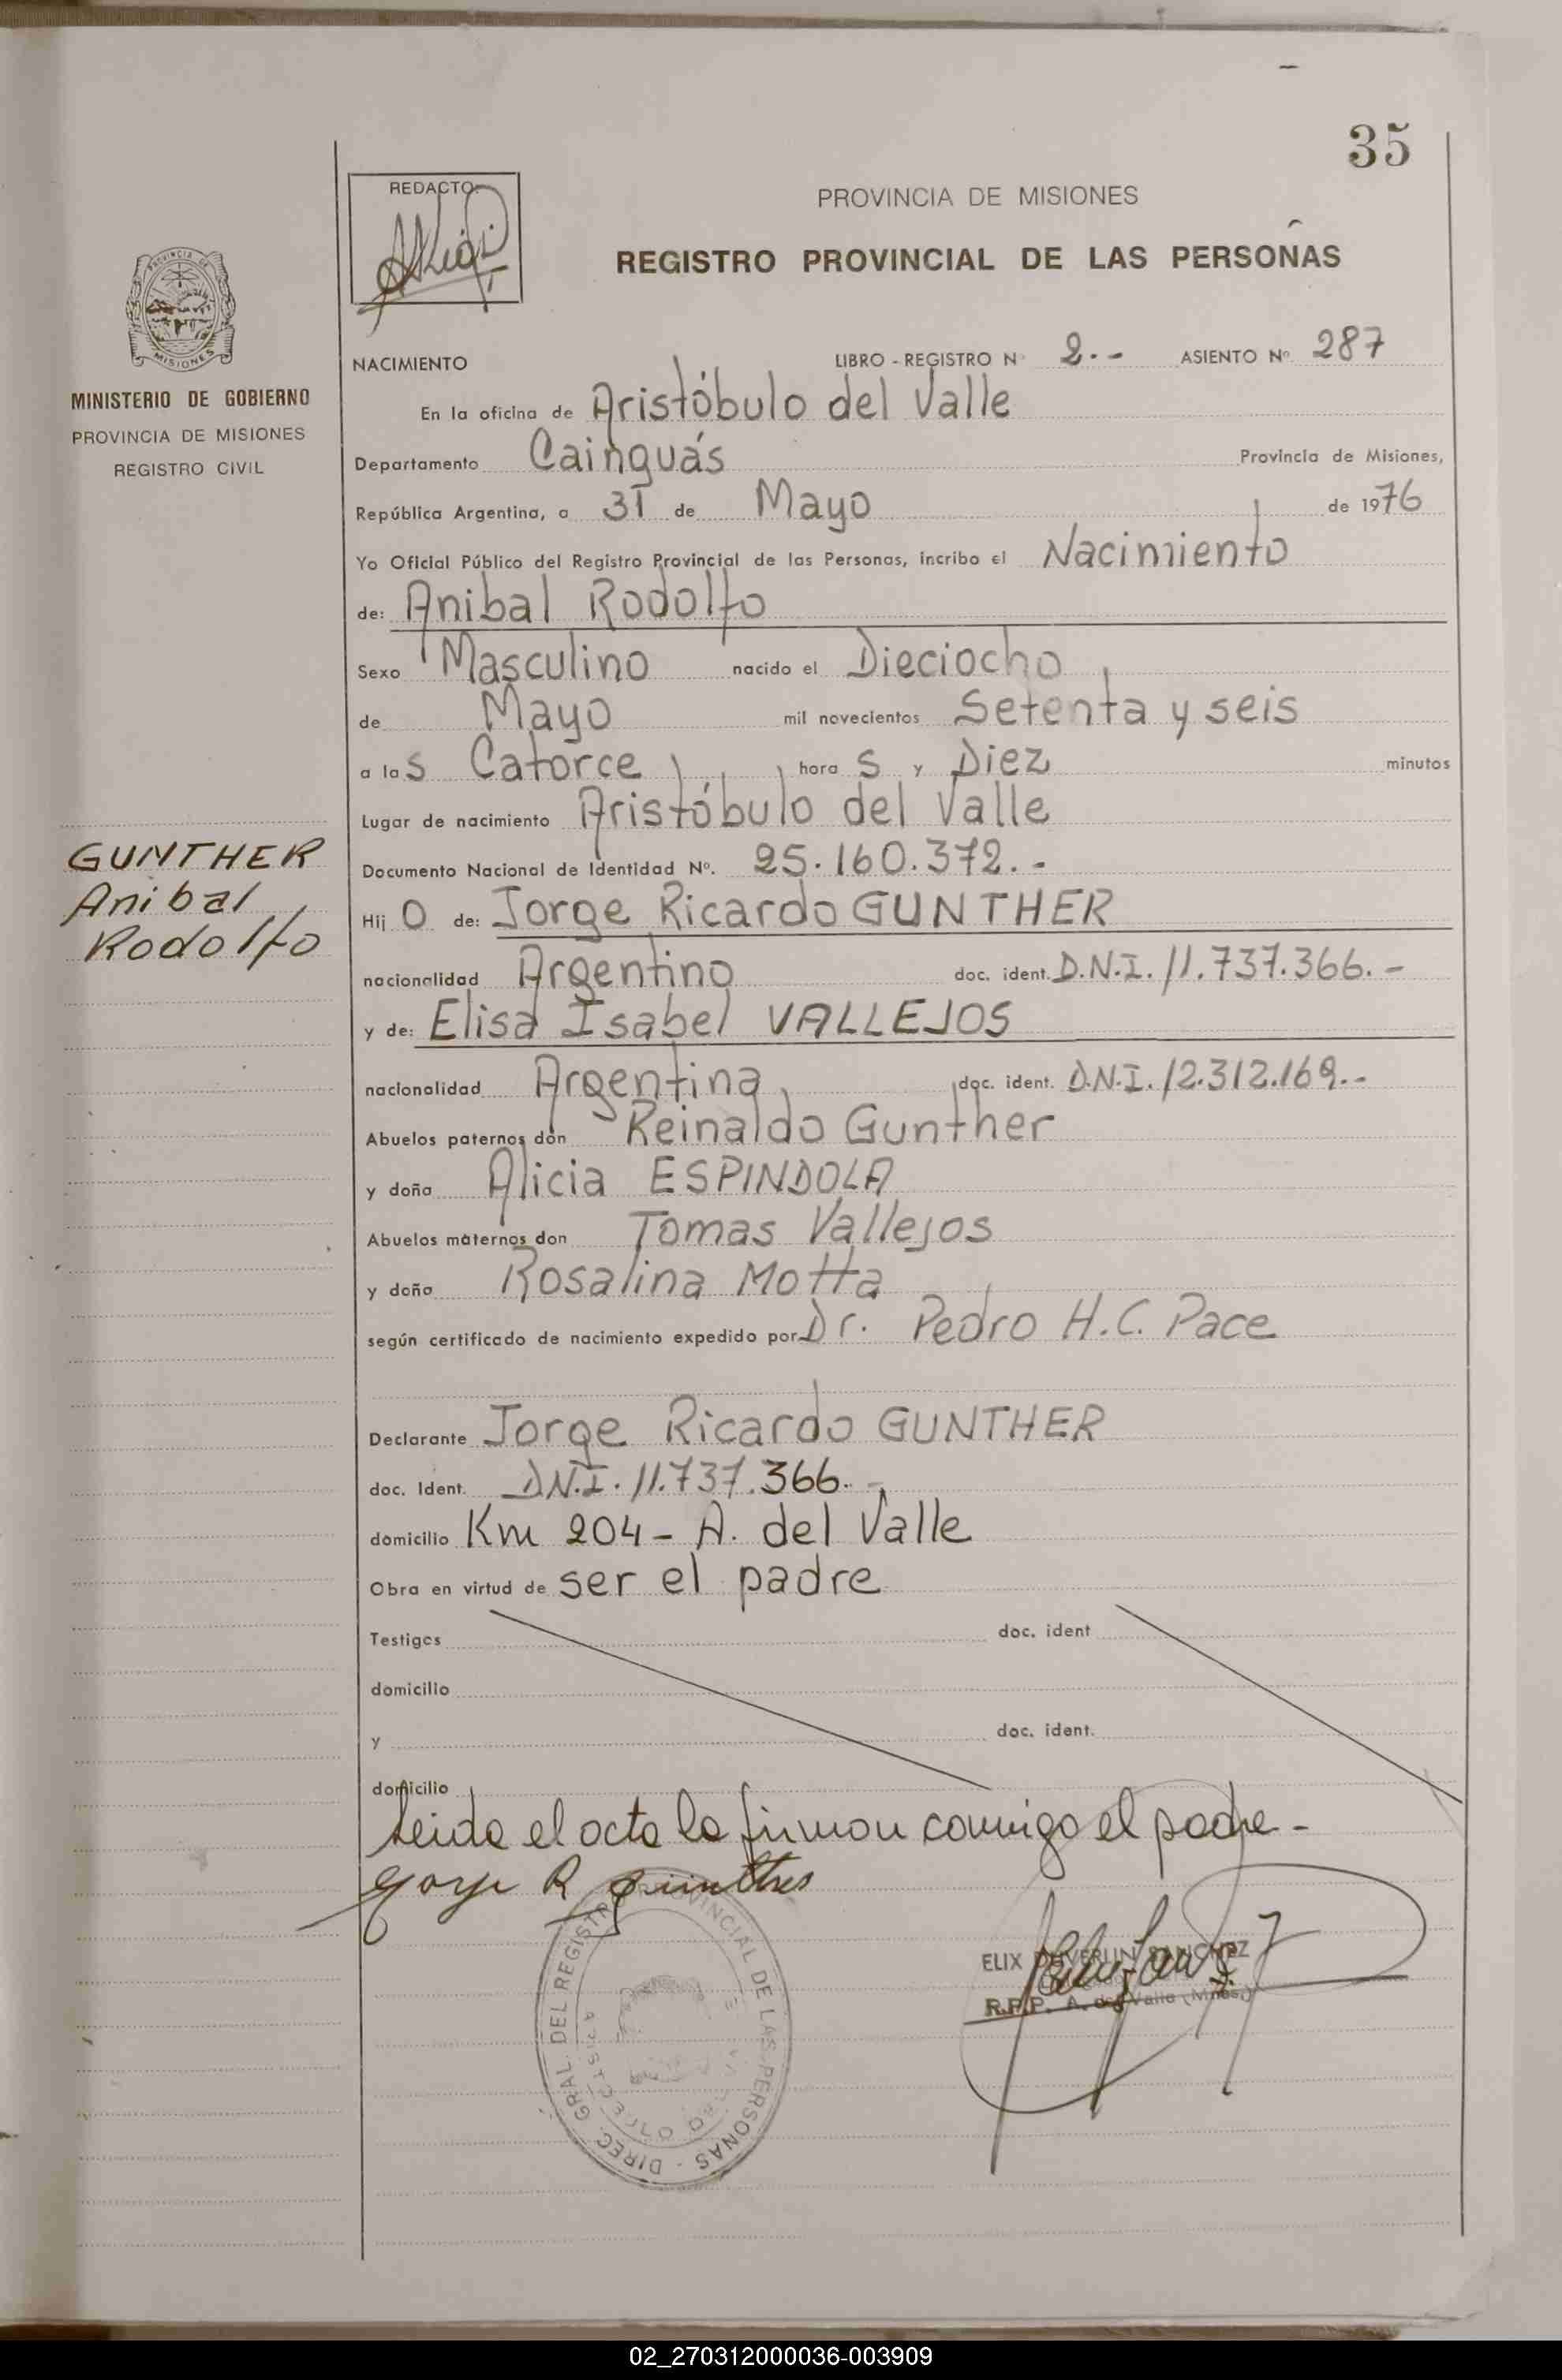 35
REDACTO:
PROVINCIA DE MISIONES
REGISTRO PROVINCIAL DE LAS PERSONAS
PROVINCIA DE
MISIONES
MINISTERIO DE GOBIERNO
PROVINCIA DE MISIONES
REGISTRO CIVIL
NACIMIENTO LIBRO - REGISTRO Nº 2.- ASIENTO Nº 287
En la oficina de Aristóbulo del Valle
Departamento Cainguás Provincia de Misiones,
República Argentina, a 31 de Mayo de 1976
Yo Oficial Público del Registro Provincial de las Personas, incribo el Nacimiento
de: Anibal Rodolfo
Sexo Masculino nacido el Dieciocho
de Mayo mil novecientos Setenta y seis
a las Catorce horas y Diez minutos
Lugar de nacimiento Aristóbulo del Valle
Documento Nacional de Identidad Nº. 25.160.372.-
GUNTHER
Anibal
Rodolfo
Hijo de: Jorge Ricardo GUNTHER
nacionalidad Argentino doc. ident. D.N.I. 11.737.366.-
y de: Elisa Isabel VALLEJOS
nacionalidad Argentina doc. ident. D.N.I. 12.312.169.-
Abuelos paternos don Reinaldo Gunther
y doña Alicia ESPINDOLA
Abuelos maternos don Tomas Vallejos
y doña Rosalina Motta
según certificado de nacimiento expedido por Dr. Pedro H.C. Pace
Declarante Jorge Ricardo GUNTHER
doc. Ident. D.N.I. 11.737.366.-
domicilio Km 204 - A. del Valle
Obra en virtud de ser el padre
Testigos doc. ident
domicilio
y doc. ident.
domicilio
Leida el acta la firman conmigo el padre -
Jorge R Günther
DIREC. GRAL. DEL REGISTRO PROVINCIAL DE LAS PERSONAS -
ELIX SANCHEZ
R.P.P. A. del Valle (Mnes.)
02_270312000036-003909